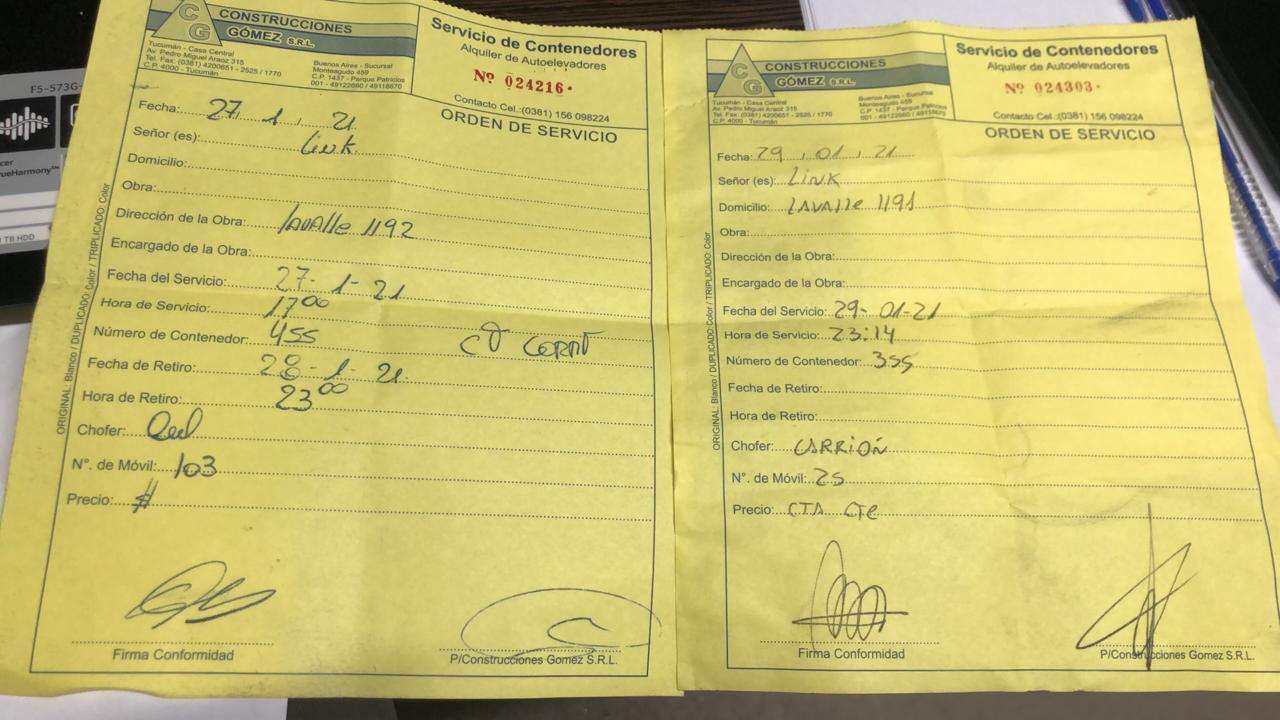 CG
CONSTRUCCIONES
GÓMEZ S.R.L.
Tucumán - Casa Central
Av. Pedro Miguel Araoz 315
Tel. Fax: (0381) 4200651 - 2525 / 1770
C.P. 4000 - Tucumán
Buenos Aires - Sucursal
Monteagudo 459
C.P. 1437 - Parque Patricios
001 - 49122660 / 49118670
Servicio de Contenedores
Alquiler de Autoelevadores
Nº 024216
Contacto Cel.:(0381) 156 098224
ORDEN DE SERVICIO
Fecha: 27 , 1 , 21
Señor (es): Link
Domicilio:
Obra:
Dirección de la Obra: lavalle 1192
Encargado de la Obra:
Fecha del Servicio: 27-1-21
Hora de Servicio: 17 00
Número de Contenedor: 455
Fecha de Retiro: 28-1-21
Hora de Retiro: 23 00
Chofer:
N°. de Móvil: 103
Precio: $
Firma Conformidad
P/Construcciones Gomez S.R.L.
ORIGINAL: Blanco / DUPLICADO: Color / TRIPLICADO: Color
CG
CONSTRUCCIONES
GÓMEZ S.R.L.
Tucumán - Casa Central
Av. Pedro Miguel Araoz 315
Tel. Fax: (0381) 4200651 - 2525 / 1770
C.P. 4000 - Tucumán
Buenos Aires - Sucursal
Monteagudo 459
C.P. 1437 - Parque Patricios
001 - 49122660 / 49118670
Servicio de Contenedores
Alquiler de Autoelevadores
Nº 024303
Contacto Cel.:(0381) 156 098224
ORDEN DE SERVICIO
Fecha: 29 , 01 , 21
Señor (es): LINK
Domicilio: LAVALLE 1191
Obra:
Dirección de la Obra:
Encargado de la Obra:
Fecha del Servicio: 29-01-21
Hora de Servicio: 23:14
Número de Contenedor: 355
Fecha de Retiro:
Hora de Retiro:
Chofer: CARRIÓN
N°. de Móvil: 25
Precio: CTA CTE
Firma Conformidad
P/Construcciones Gomez S.R.L.
ORIGINAL: Blanco / DUPLICADO: Color / TRIPLICADO: Color
F5-573G
TB HDD